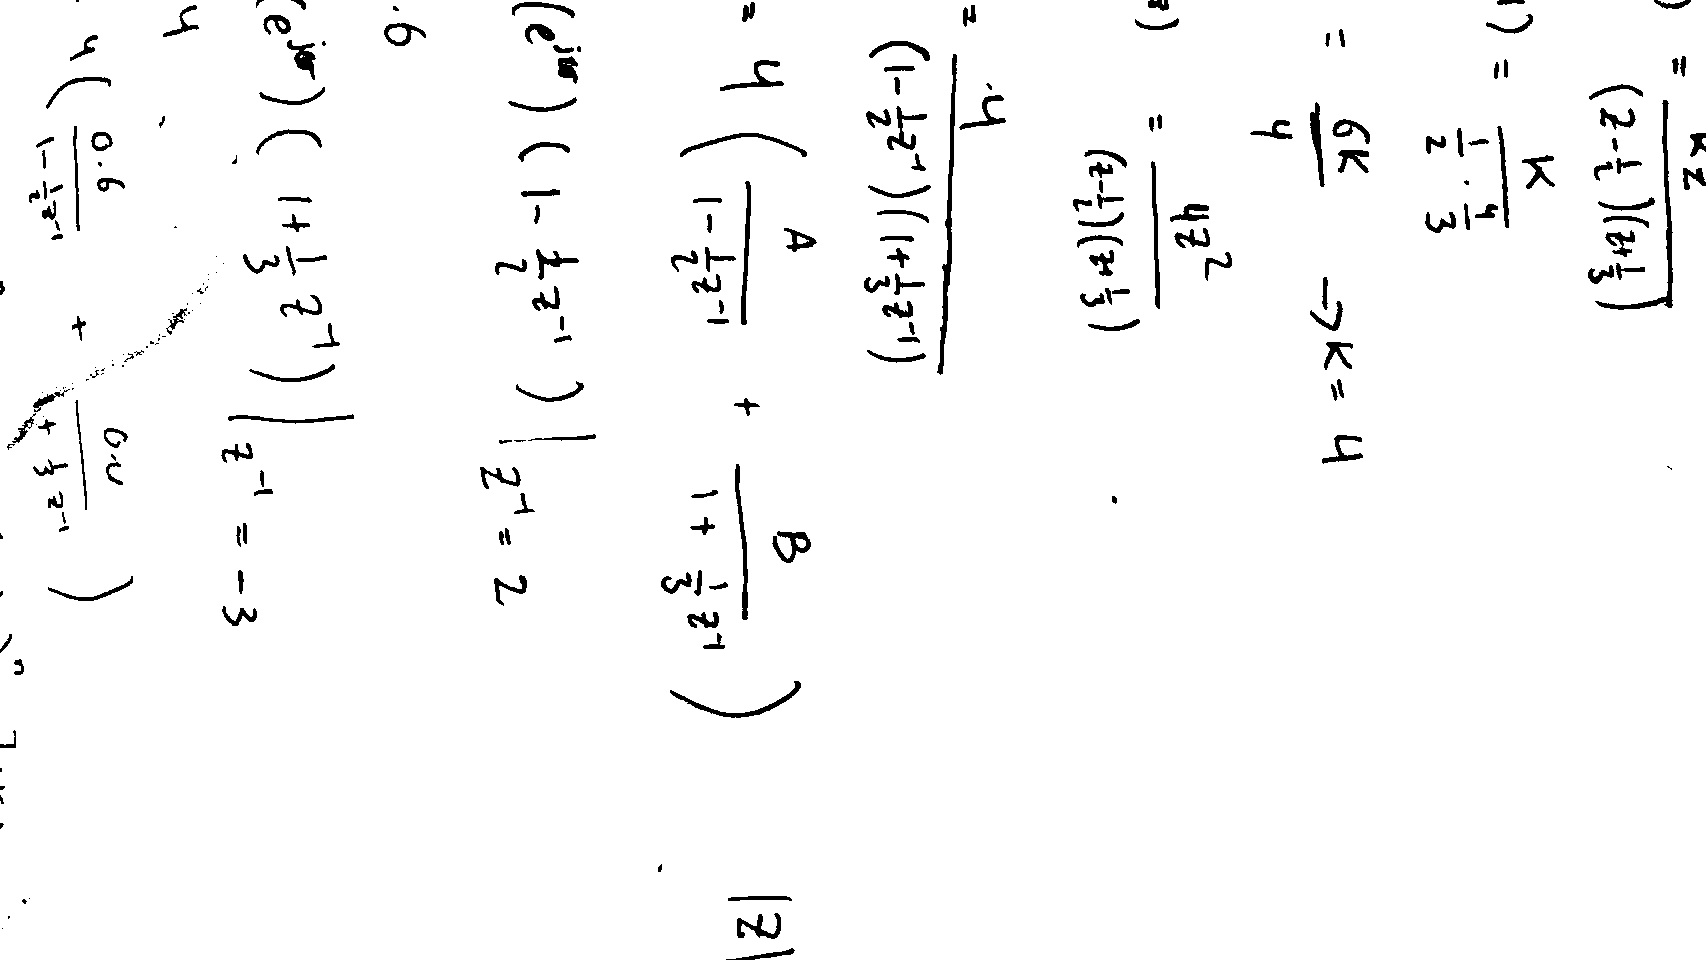 ) = kz² / (z - 1/2)(z + 1/3)
1) = K / (1/2 · 4/3)
= 6K / 4 → K = 4
z) = 4z² / (z - 1/2)(z + 1/3)
= 4 / (1 - 1/2 z⁻¹)(1 + 1/3 z⁻¹)
= 4 ( A / (1 - 1/2 z⁻¹) + B / (1 + 1/3 z⁻¹) ) |z|
(e^jω) (1 - 1/2 z⁻¹) | z⁻¹ = 2
.6
(e^jω) (1 + 1/3 z⁻¹) | z⁻¹ = -3
4
4 ( 0.6 / (1 - 1/2 z⁻¹) + 0.4 / ( + 1/3 z⁻¹) )